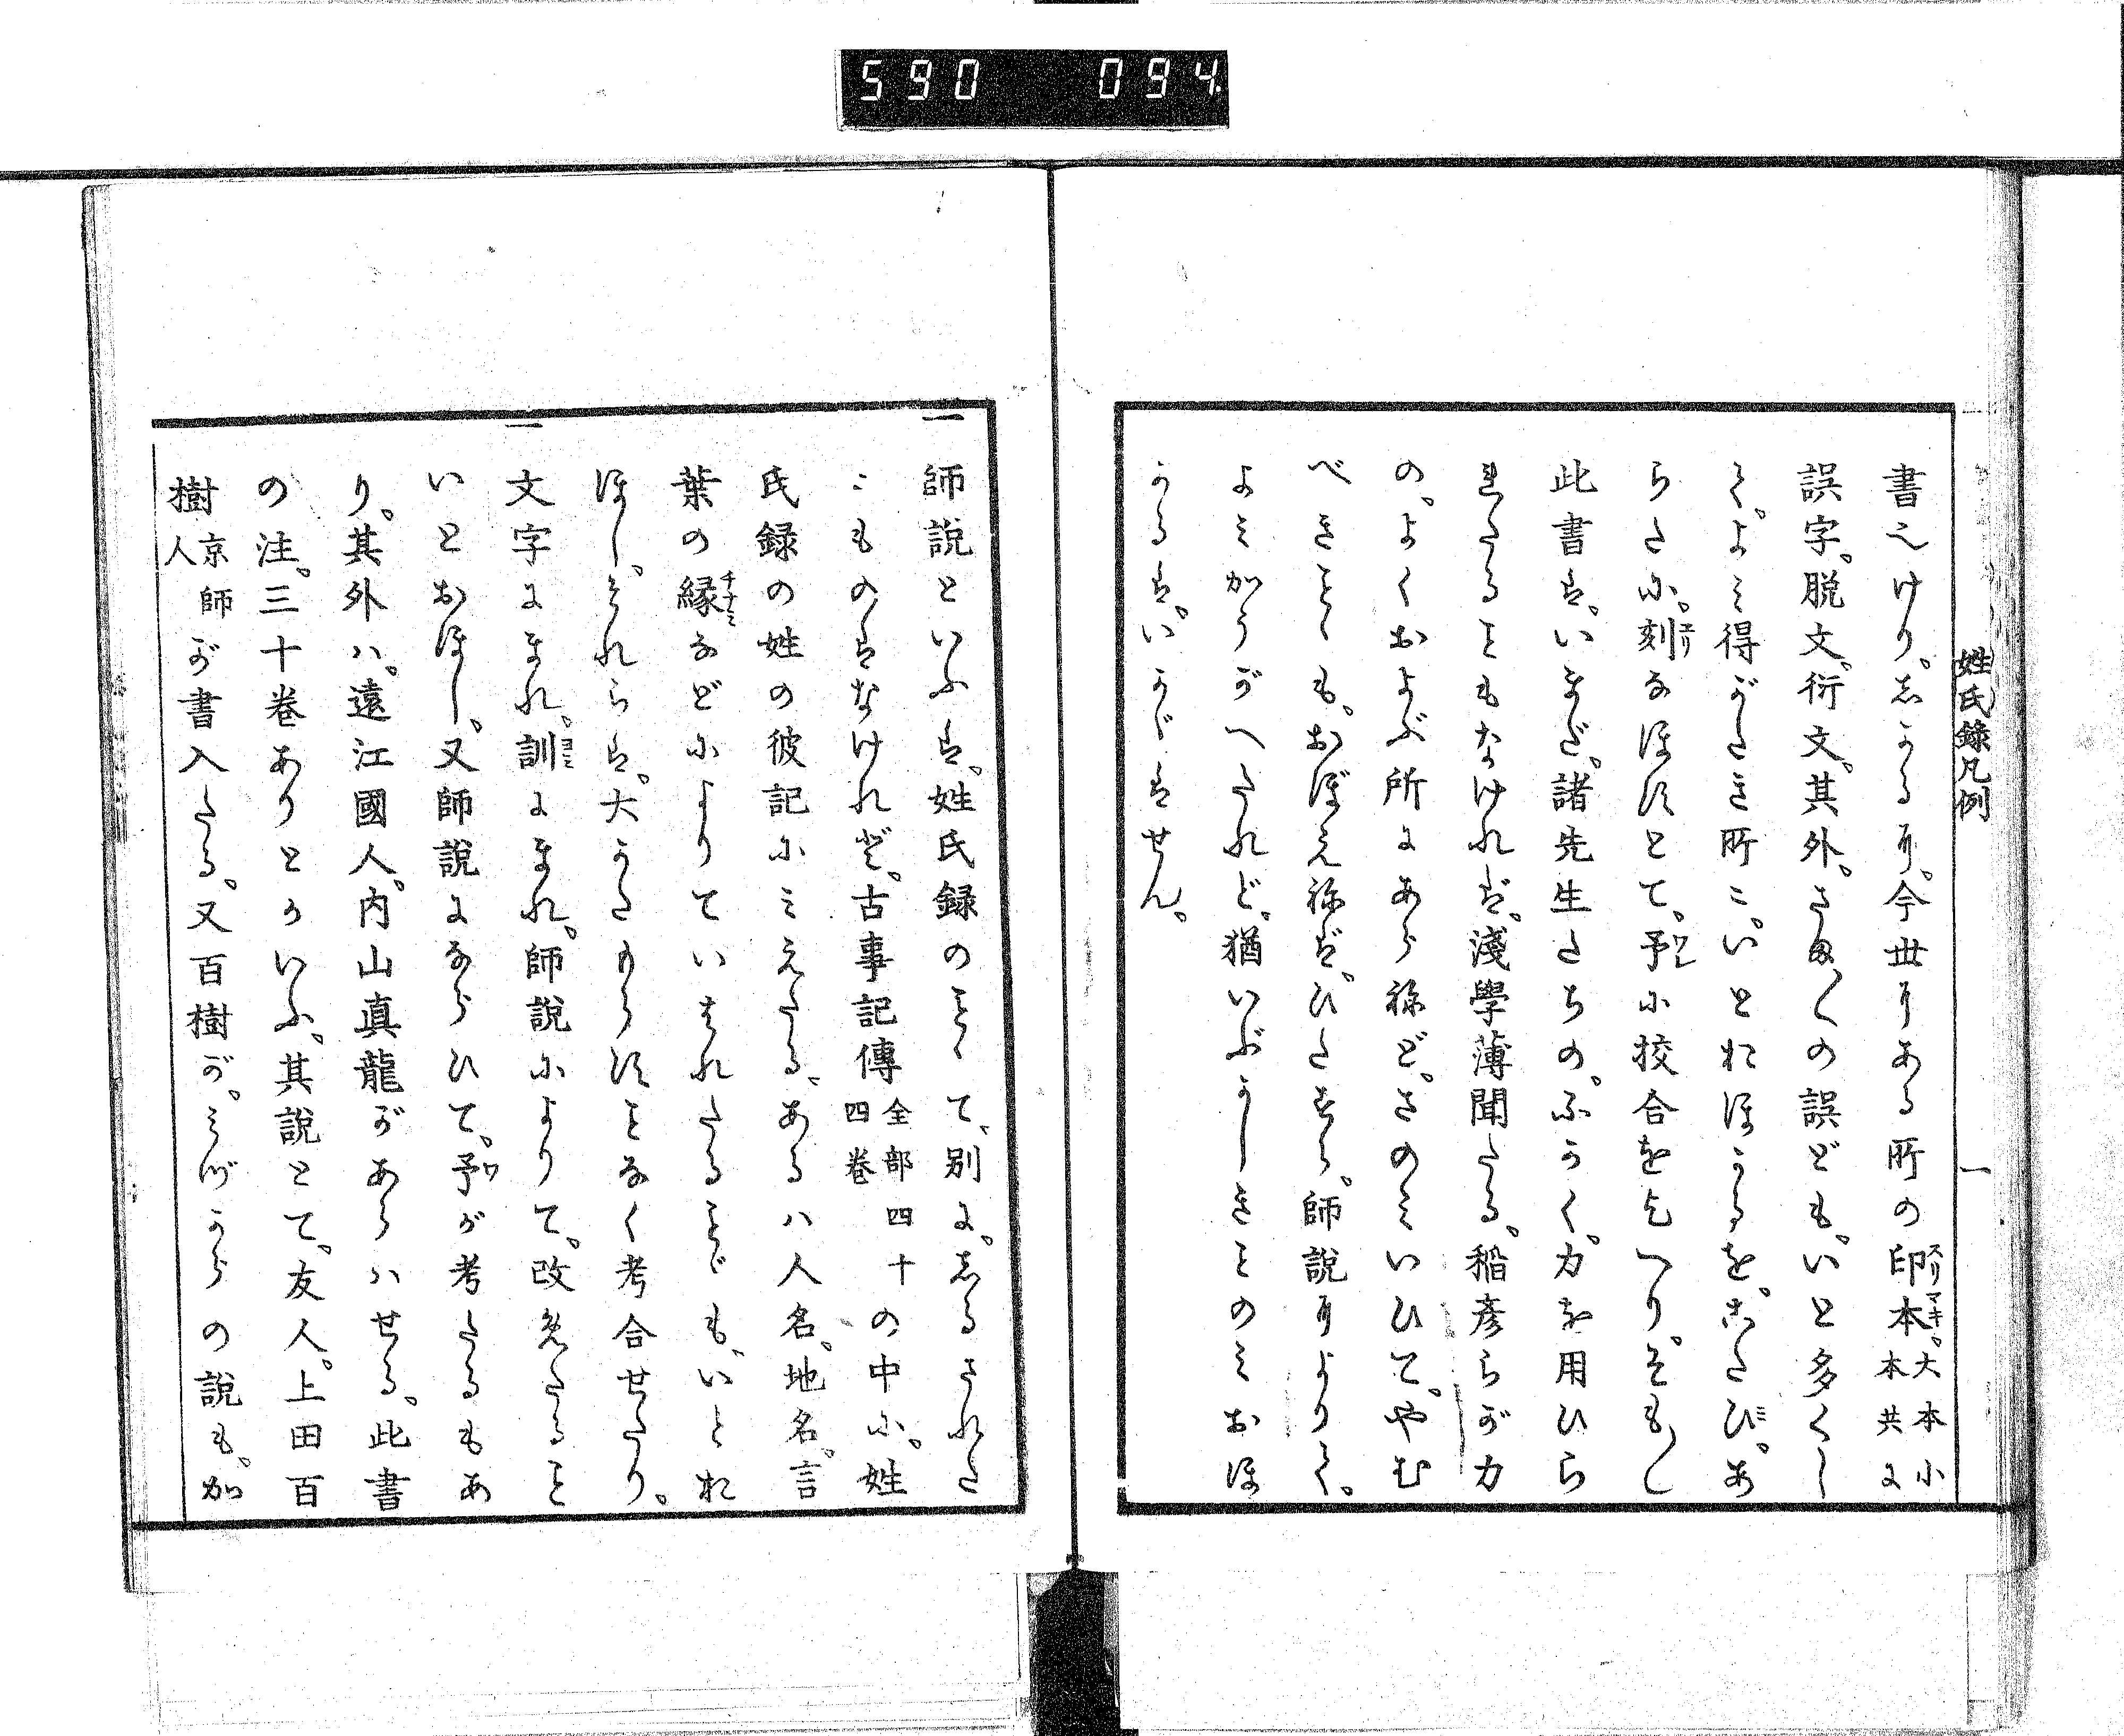 590 094
姓氏録凡例
一
書之けり。志かるに。今世にある所の印本。大本小本共に
誤字。脱文。衍文。其外。さま〴〵の誤ども。いと多くし
て。よミ得がたき所こ。いとおほかるを。こたび。あ
らたに。刻なほすとて。予に挍合をこへり。そも〳〵
此書は。いまだ。諸先生たちの。ふかく。力を用ひら
れたることもなければ。淺學薄聞たる。稲彦らが力
の。よくおよぶ所にあらねど。さのミいひて。やむ
べきことも。おぼえねば。ひたすら。師説によりて。
よミかうがへたれど。猶いぶかしきことのミおほ
かるは。いかゞはせん。
一師説といふは。姓氏録のことゝて。別に。志るされた
こものはなけれど。古事記傳全部四十四卷の中に。姓
氏録の姓の彼記にミえたる。あるハ人名。地名。言
葉の縁などによりていはれたることゞも。いとお
ほし。それらは。大かたもらすことなく考合せたり。
一文字にまれ。訓にまれ。師説によりて。改めたること
いとおほし。又師説にならひて。予が考たるもあ
り。其外ハ。遠江國人。内山真龍があらハせる。此書
の注。三十卷ありとかいふ。其説とて。友人。上田百
樹京師人が書入たる。又百樹が。ミづからの説も。加